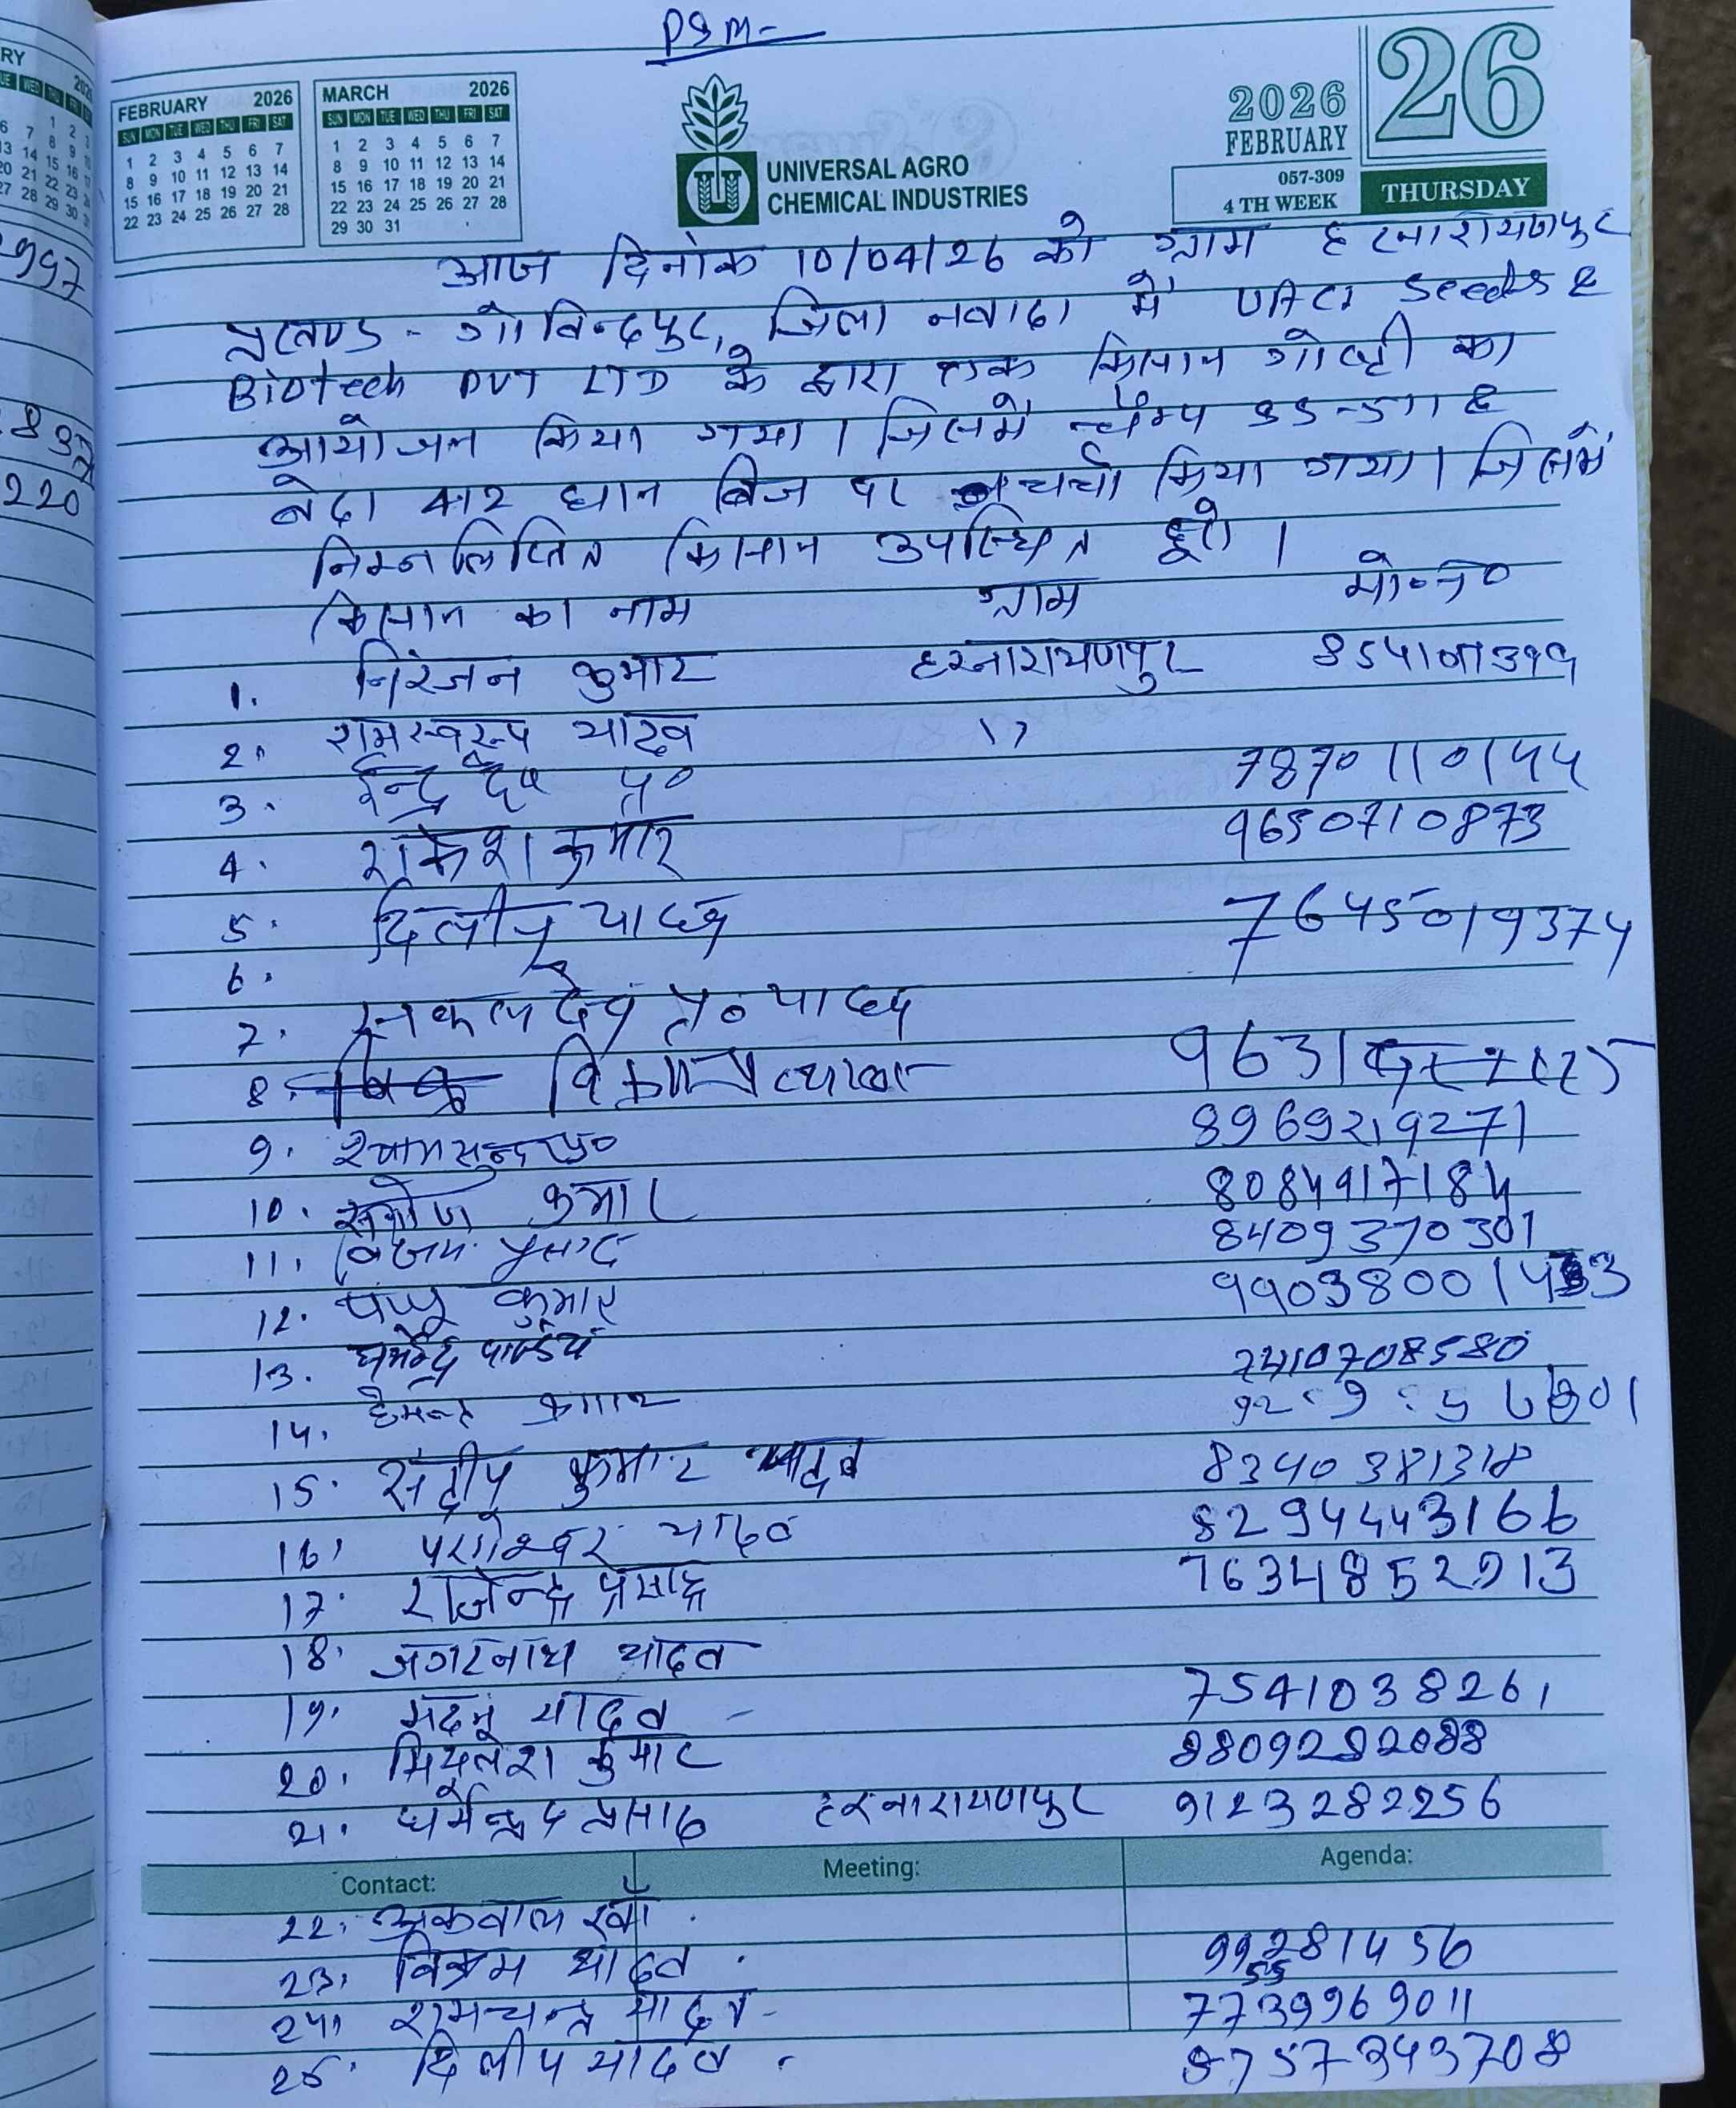 PSM-
FEBRUARY 2026
SUN MON TUE WED THU FRI SAT
1 2 3 4 5 6 7
8 9 10 11 12 13 14
15 16 17 18 19 20 21
22 23 24 25 26 27 28
MARCH 2026
SUN MON TUE WED THU FRI SAT
1 2 3 4 5 6 7
8 9 10 11 12 13 14
15 16 17 18 19 20 21
22 23 24 25 26 27 28
29 30 31
UNIVERSAL AGRO
CHEMICAL INDUSTRIES
2026
FEBRUARY
057-309
4 TH WEEK
26
THURSDAY
आज दिनांक 10/04/26 को ग्राम हरनारायणपुर
प्रखण्ड - गोविन्दपुर, जिला नवादा में UACI Seeds &
Biotech PVT LTD के द्वारा एक किसान गोष्ठी का
आयोजन किया गया। जिसमें चैम्प SS-511 &
वेदा 412 धान बिज पर चर्चा किया गया। जिसमें
निम्नलिखित किसान उपस्थित हुए।
किसान का नाम ग्राम मो०न०
1. निरंजन कुमार हरनारायणपुर
2. रामस्वरूप यादव "
3. ईन्द्र देव प्र० 7870110144
4. राकेश कुमार 9650710873
5. दिलीप यादव 7645019374
6.
7. सकलदेव प्र० यादव
8. 9631
9. श्यामसुन्दर प्र० 8969219271
10. कुमार 8084917184
11. विजय प्रसाद 8409370301
12. पप्पू कुमार 9903800143
13. धर्मेन्द्र पाण्डेय
14. हेमन्त कुमार
15. संदीप कुमार यादव 8340381318
16. यादव 8294443166
17. राजेन्द्र प्रसाद 7634852913
18. जगरनाथ यादव
19. यादव - 7541038261
20. मिथलेश कुमार 8809292088
21. धर्मेन्द्र प्रसाद हरनारायणपुर 9123282256
Contact: Meeting: Agenda:
22. अकवाल खाँ.
23. विक्रम यादव.
24. रामचन्द्र यादव- 7739969011
25. दिलीप यादव. 8757343708